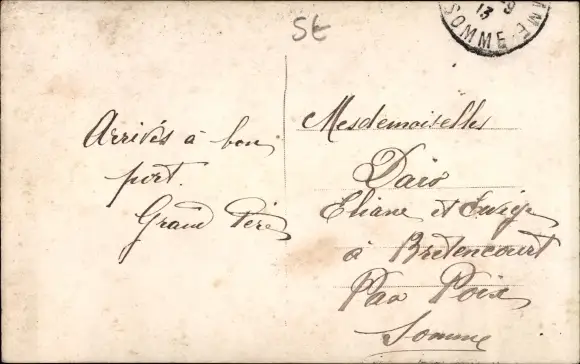 St
-9
13
SOMME
Arrivés à bon
port.
Grand Père
Mesdemoiselles
Daix
Eliane et
à Bretencourt
Par Poix
Somme